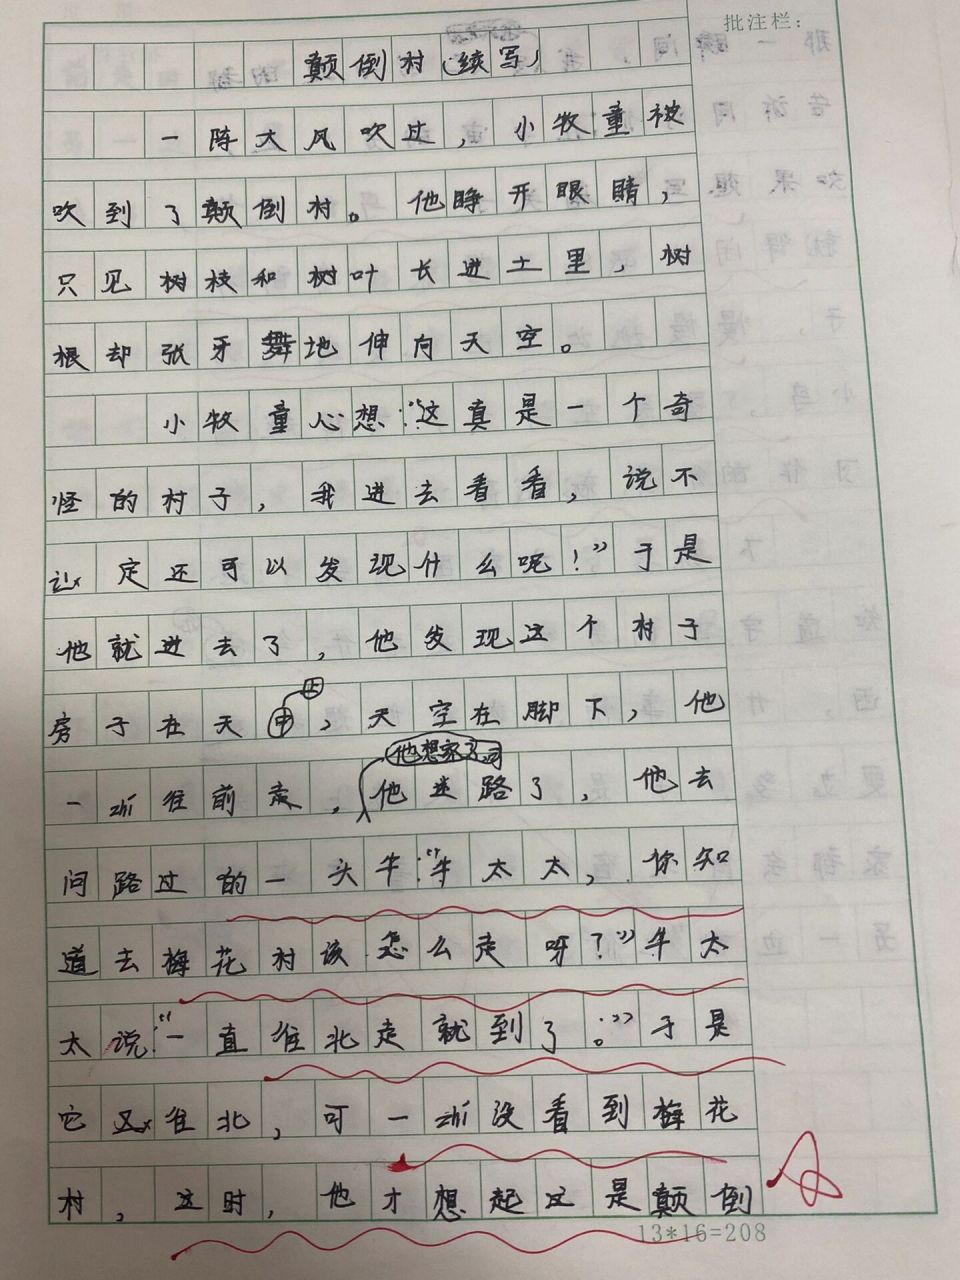 批注栏：
颠倒村（续写）
一阵大风吹过，小牧童被
吹到了颠倒村。他睁开眼睛，
只见树枝和树叶长进土里，树
根却张牙舞地伸向天空。
小牧童心想：“这真是一个奇
怪的村子，我进去看看，说不
定还可以发现什么呢！”于是
他就进去了，他发现这个村子
上
房子在天中，天空在脚下，他
他想家了，可
一zhí往前走，他迷路了，他去
问路过的一头牛：“牛太太，你知
道去梅花村该怎么走呀？”牛太
太说：“一直往北走就到了。”于是
它又往北，可一zhí没看到梅花
村，这时，他才想起这是颠倒
13*16=208